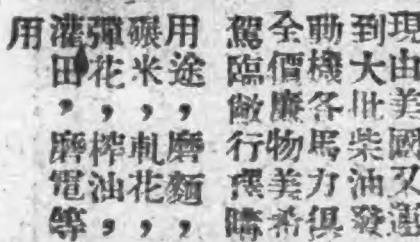 現由美國又運
到大批柴油發
動機各馬力俱
全價廉物美希
駕臨敝行
用途，磨麵，
碾米，軋花，
彈花，榨油，
灌田，磨電等
用